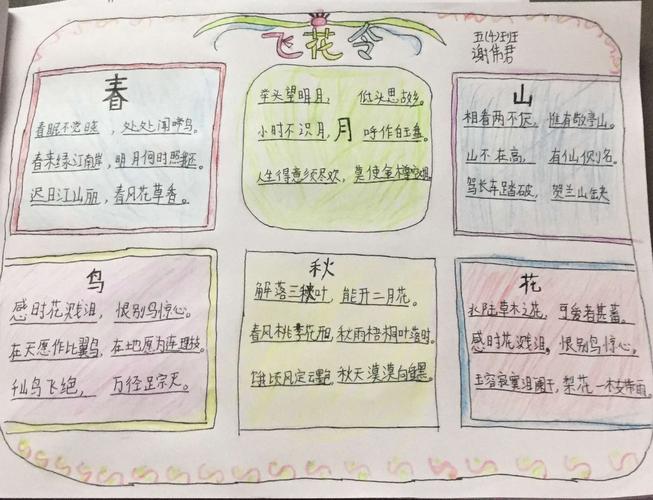 飞花令
五(4)班
谢伟君
春
春眠不觉晓，处处闻啼鸟。
春来绿江南岸，明月何时照还。
迟日江山丽，春风花草香。
举头望明月，低头思故乡。
小时不识月，月 呼作白玉盘。
人生得意须尽欢，莫使金樽
山
相看两不厌，惟有敬亭山。
山不在高，有仙则名。
驾长车踏破，贺兰山缺
鸟
感时花溅泪，恨别鸟惊心。
在天愿作比翼鸟，在地愿为连理枝。
千山鸟飞绝，万径踪灭。
秋
解落三秋叶，能开二月花。
春风桃李花，秋雨梧桐叶落时。
俄顷风定云墨，秋天漠漠向昏黑。
花
水陆草木之花，可爱者甚蕃。
感时花溅泪，恨别鸟惊心。
玉容寂寞泪阑干，梨花一枝春带雨。